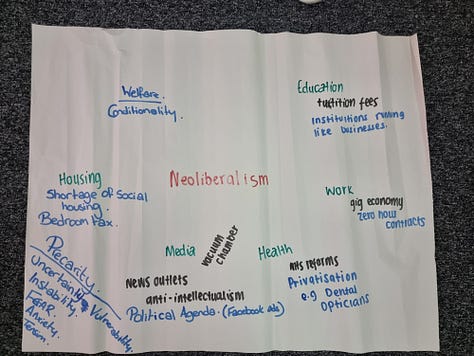 Welfare.
Conditionality.
Education
tuition fees
Instituitions running
like businesses.
Housing
Shortage of Social
housing.
Bedroom Tax.
Neoliberalism
Work
gig economy
zero hour
contracts
Precarity.
Uncertainty & Vulnerability.
Instability,
FEAR.
Anxiety.
Tension.
Media
vacuum
chamber
News outlets
anti-intellectualism
Political Agenda. (Facebook ads)
Health
NHS reforms
Privatisation
e.g Dental
Opticians